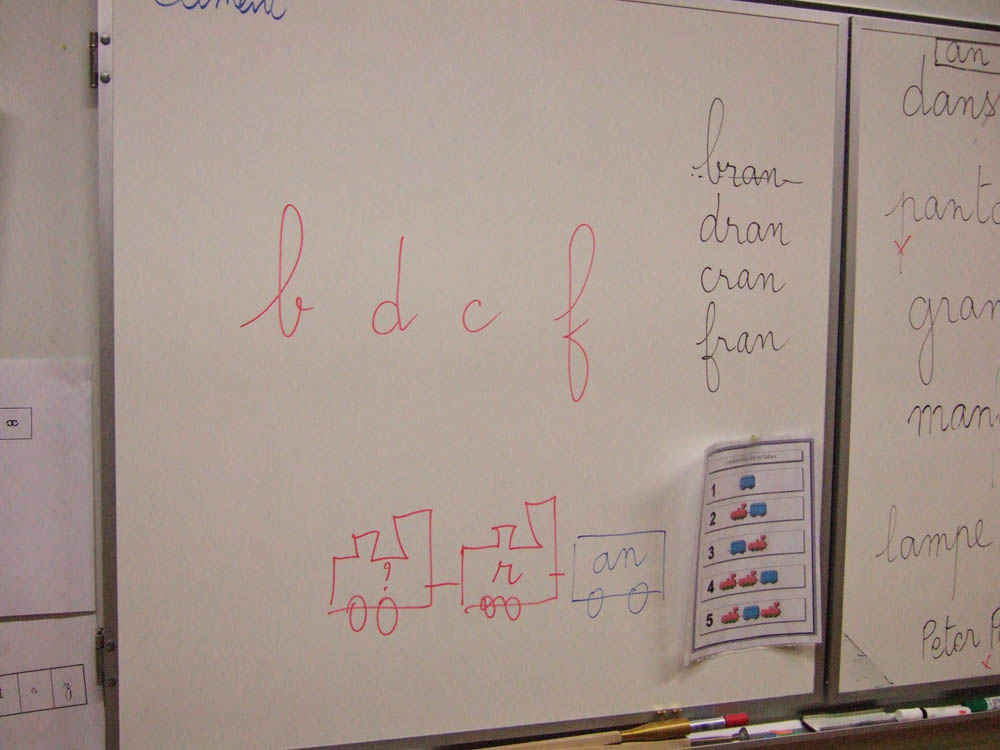 b d c f
bran
dran
cran
fran
? r an
1
2
3
4
5
an
dans
gran
lampe
Peter
x
z